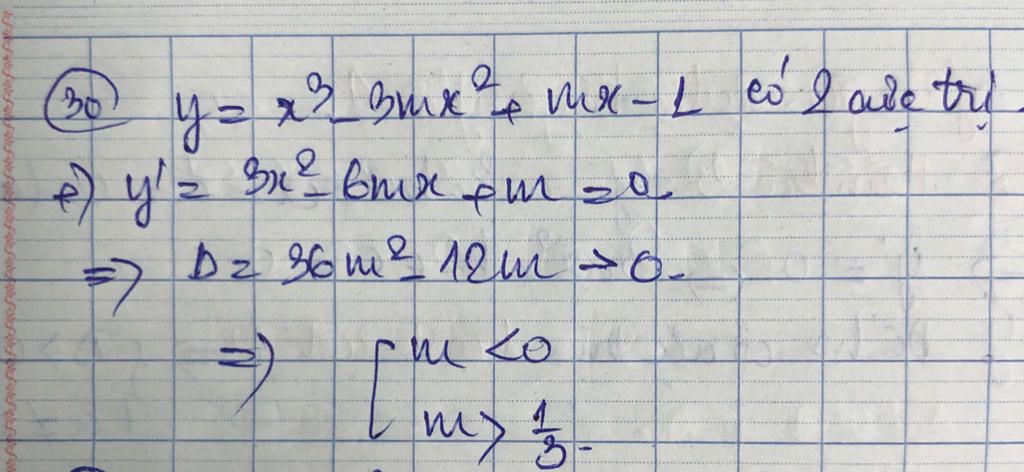 30 y = x³ - 3mx² + mx - 1 có 2 cực trị.
+) y' = 3x² - 6mx + m = 0
=> Δ = 36m² - 12m > 0.
=> [ m < 0
m > 1/3.